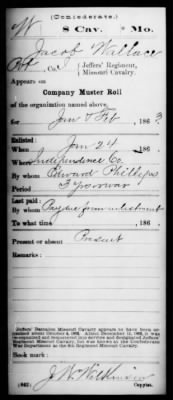 (Confederate.)
W 8 Cav. Mo.
Jacob Wallace
Pvt, Co. Jeffers' Regiment, Missouri Cavalry.
Appears on
Company Muster Roll
of the organization named above,
for Jan & Feb, 1863.
Enlisted:
When Jan 24, 186
Where Independence Co.
By whom Edward Phillips
Period 3 years or war
Last paid:
By whom Pay due from enlistment
To what time, 186
Present or absent Present
Remarks:
Jeffers' Battalion Missouri Cavalry appears to have been organized about October 4, 1862. About December 1862, it was organized into a regiment and designated Jeffers' Regiment Missouri Cavalry, but was known at the Confederate War Department as the 8th Regiment Missouri Cavalry.
Book mark:
J. W. Wilkinson
(642) Copyist.